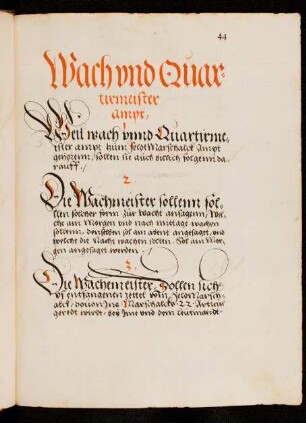 44
Wach vnd Quar-
tirmeister
ampt,
1.
Weil wach vnnd Quartirme,
ister ampt zum feldMarschalck Ampt
gehörenn, sollen sie auch billich folgenn da,
rauff.
2.
Die Wachmeister sollenn söl,
llen solcher form zur Wacht ansagenn, Wel,
che am Morgen vnd nach mittage wachen
sollenn, denselben sol am abent angesagt, vnd
welche die Nacht wachen sollen, Sol am Mor,
gen angesaget werden.
3.
Die Wachemeister, Sollen sich,
vf entfangenen zettel vom feldMarsch,
alck, dovon Ins Marschalcks 22 Articul
geredt wirdt, bey Ime vnd dem leutenandt